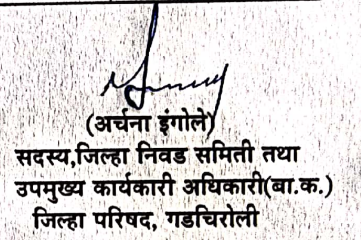 (अर्चना इंगोले)
सदस्य,जिल्हा निवड समिती तथा
उपमुख्य कार्यकारी अधिकारी(बा.क.)
जिल्हा परिषद, गडचिरोली